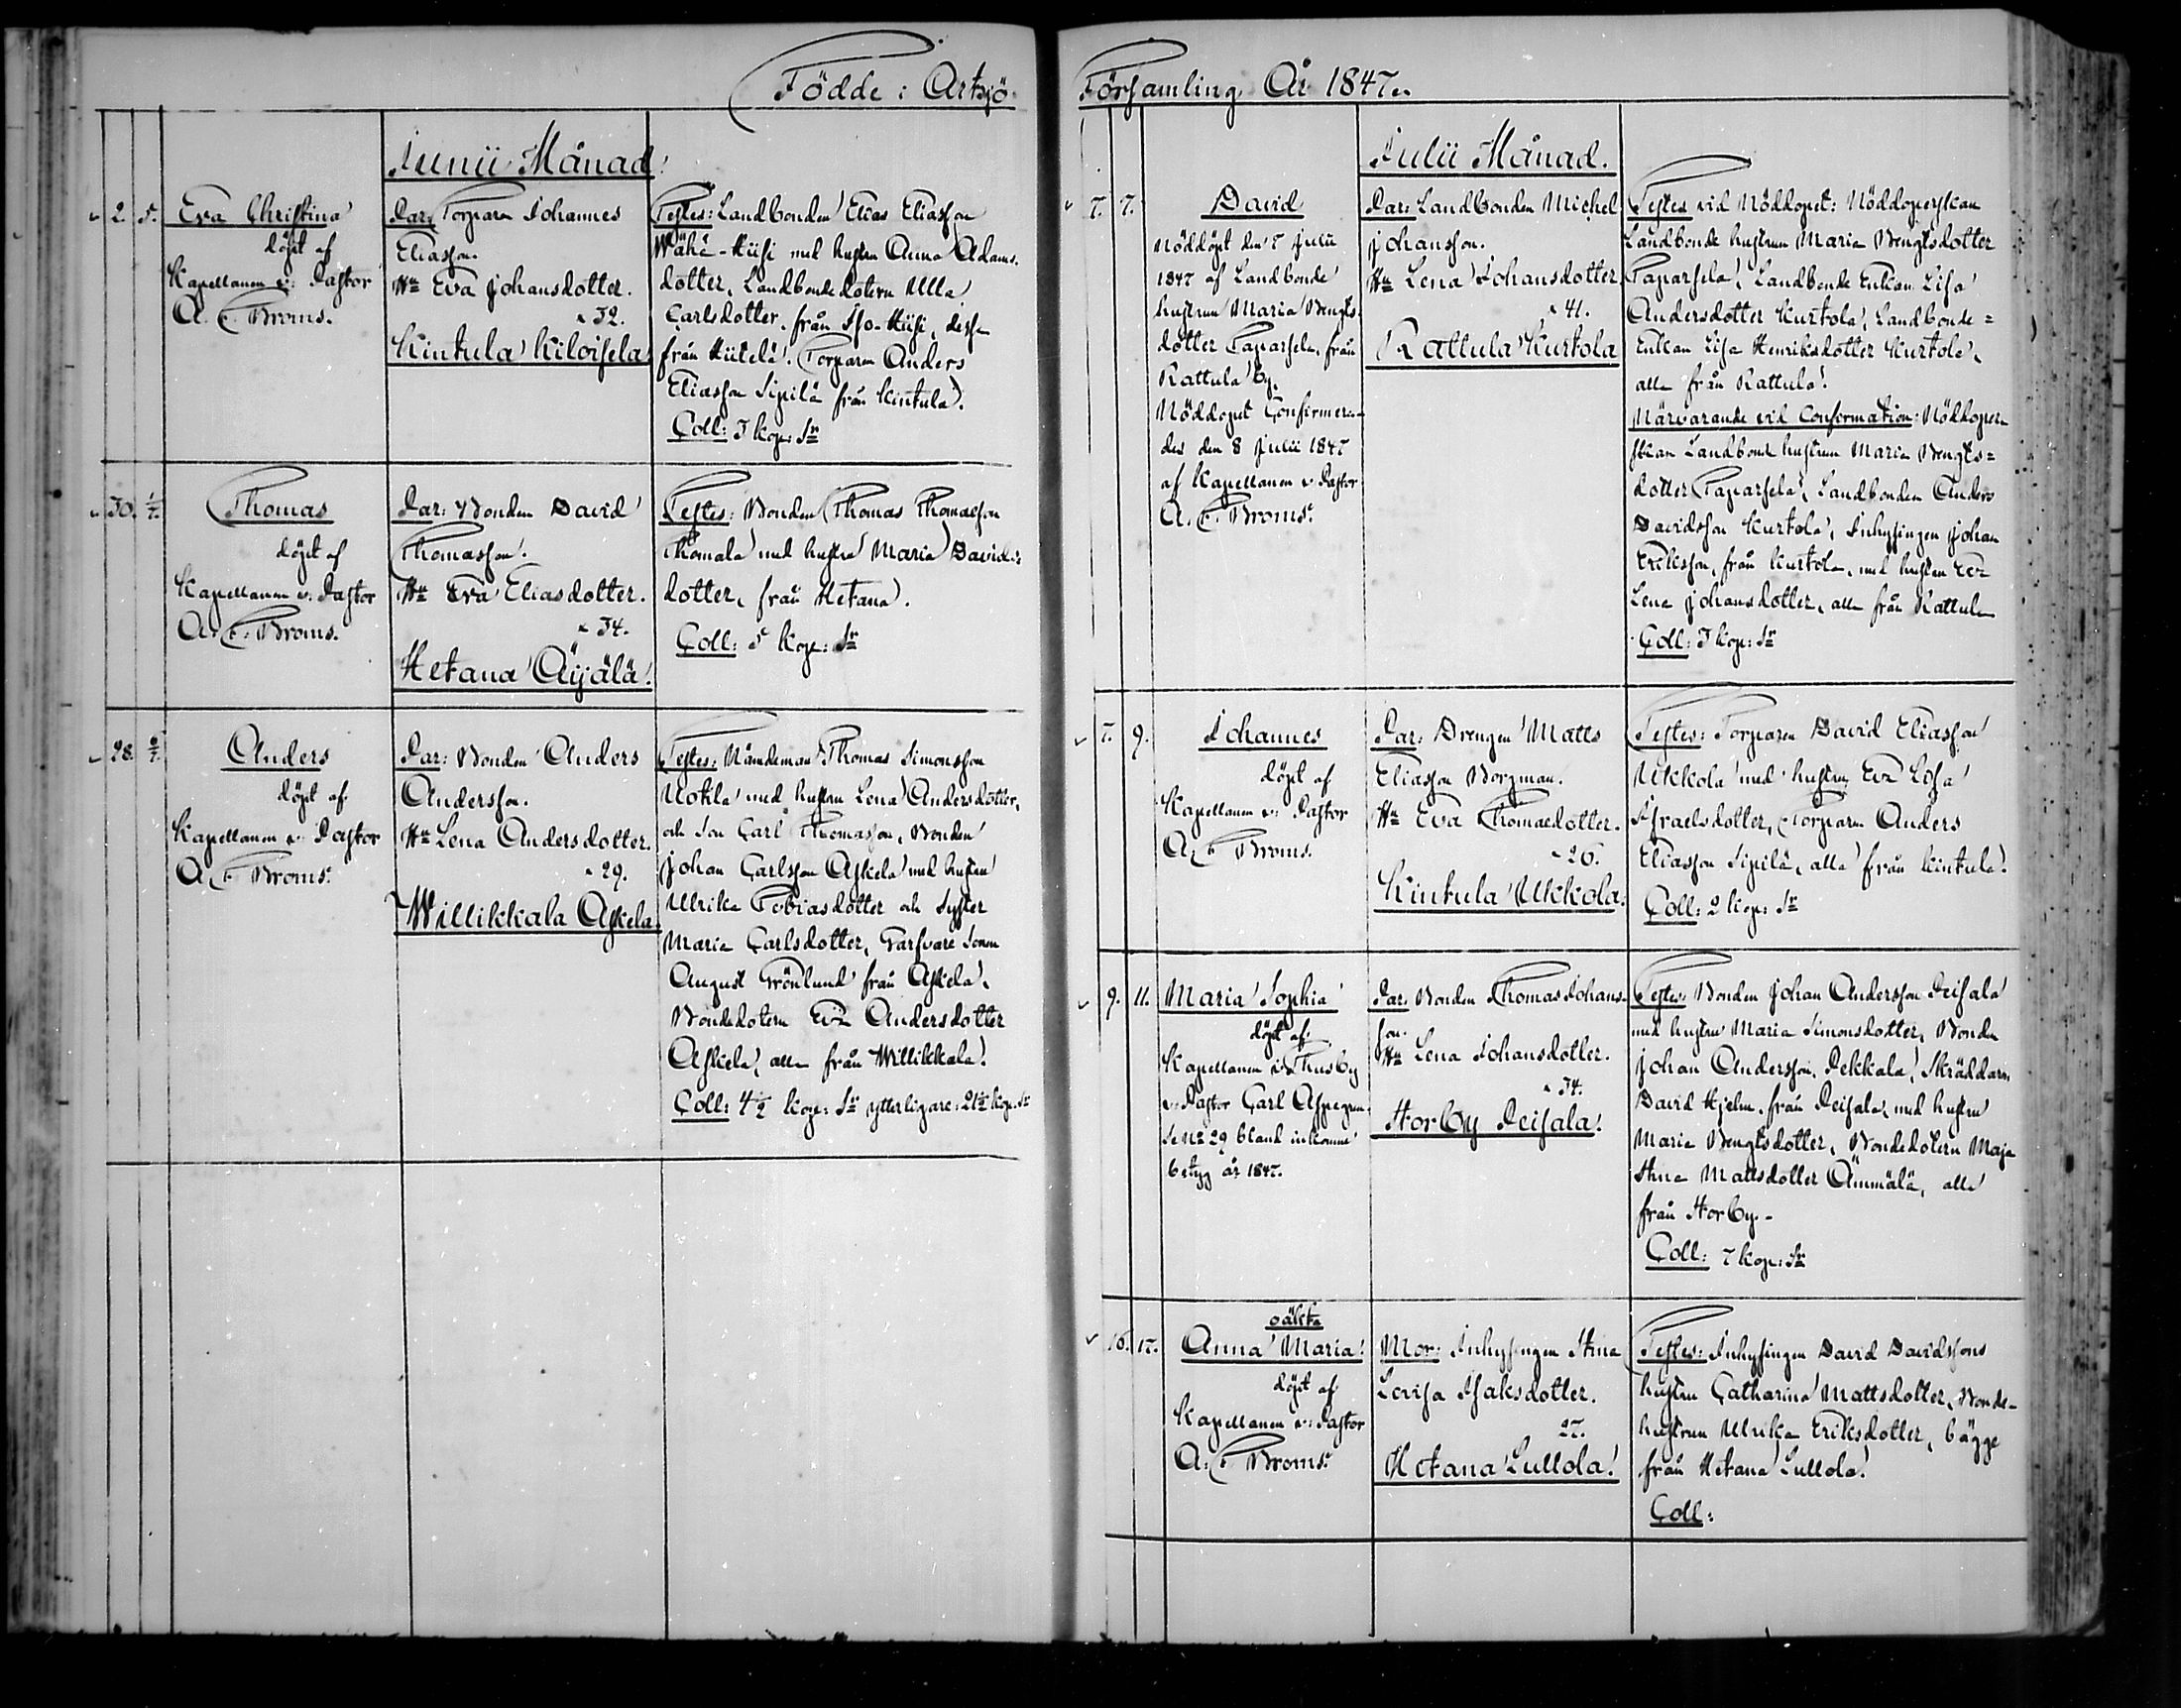 Födde i Artsjö
Junii Månad.
2. 5. Eva Christina
döpt af
Kapellanen v: Pastor
A. F. Broms.
Par: Torparen Johannes
Eliasson.
Hu Eva Johansdotter.
32.
Kintula Kiloisela
Testes: Landbonden Elias Eliasson
Wähä-Hiisi med hustru Anna Adams-
dotter, Landbondedotern Ulla
Carlsdotter, från Iso-Hiisi, desse
från Hiitelä. Torparen Anders
Eliasson Sipilä från Kintula.
Coll: 3 kop: Sr
30. 1/7. Thomas
döpt af
Kapellanen v: Pastor
A. F. Broms.
Par: Bonden David
Thomasson.
Hu Eva Eliasdotter.
34.
Hetana Äijälä.
Testes: Bonden Thomas Thomasson
Thomala med hustru Maria Davids-
dotter, från Hetana.
Coll: 5 kop: Sr
28. 2/7. Anders
döpt af
Kapellanen v: Pastor
A. F. Broms.
Par: Bonden Anders
Andersson.
Hu Lena Andersdotter.
29.
Willikkala Askela.
Testes: Nämdeman Thomas Simonsson
Uotila med hustru Lena Andersdotter,
och son Carl Thomasson, Bonden
Johan Carlsson Askela med hustru
Ulrika Tobiasdotter och Syster
Maria Carlsdotter, Garfvare Sonen
August Grönlund från Askela,
Bondedotern Eva Andersdotter
Askela, alla från Willikkala.
Coll: 4½ kop: Sr ytterligare: 21½ kop. Sr
Församling År 1847.
Julii Månad.
7. 7. David
Nöddöpt den 7 Julii
1847 af Landbonde
hustrun Maria Bengts-
dotter Paparsela, från
Rattula by.
Nöddopet Confirmera-
des den 8 Julii 1847
af Kapellanen v. Pastor
A. F. Broms.
Par: Landbonden Michel
Johansson.
Hu Lena Johansdotter
41.
Rattula Kurtola
Testes vid Nöddopet: Nöddoperskan
Landbonde hustrun Maria Bengtsdotter
Paparsela, Landbonde Enkan Lisa
Andersdotter Kurtola, Landbonde=
Enkan Lisa Henriksdotter Kurtola,
alla från Rattula.
Närvarande vid Confirmation: Nöddoper-
skan Landbonde hustrun Maria Bengts=
dotter Paparsela, Landbonden Anders
Davidsson Kurtola, Inhysingen Johan
Eriksson, från Kurtola, med hustru Eva
Lena Johansdotter, alla från Rattula
Coll: 3 kop: Sr
7. 9. Johannes
döpt af
Kapellanen v: Pastor
A. F. Broms.
Par: Drengen Matts
Eliasson Borgman.
Hu Eva Thomasdotter.
26.
Kintula Ukkola.
Testes: Torparen David Eliasson
Ukkola med hustru Eva Lisa
Israelsdotter, Torparen Anders
Eliasson Sipilä, alla från Kintula.
Coll: 2 kop: Sr
9. 11. Maria Sophia
döpt af
Kapellanen i Thusby
v. Pastor Carl Aspegren
Se No 29 bland inkomne
betyg år 1847.
Par: Bonden Thomas Johans-
son.
Hu Lena Johansdotter.
34.
Storby Peisala.
Testes: Bonden Johan Andersson Peisala
med hustru Maria Simonsdotter, Bonden
Johan Andersson Pekkala, Skräddaren
David Hjelm, från Peisala, med hustru
Maria Bengtsdotter, Bondedotern Maja
Stina Mattsdotter Ämmälä, alla
från Storby.-
Coll: 7 kop: Sr
16. 17. oäkta
Anna Maria.
döpt af
Kapellanen v: Pastor
A. F. Broms.
Mor: Inhysingen Stina
Lovisa Isaksdotter.
27.
Hetana Lullola.
Testes: Inhysingen David Davidssons
hustru Catharina Mattsdotter, Bonde-
hustrun Ulrika Eriksdotter, bägge
från Hetana Lullola.
Coll: